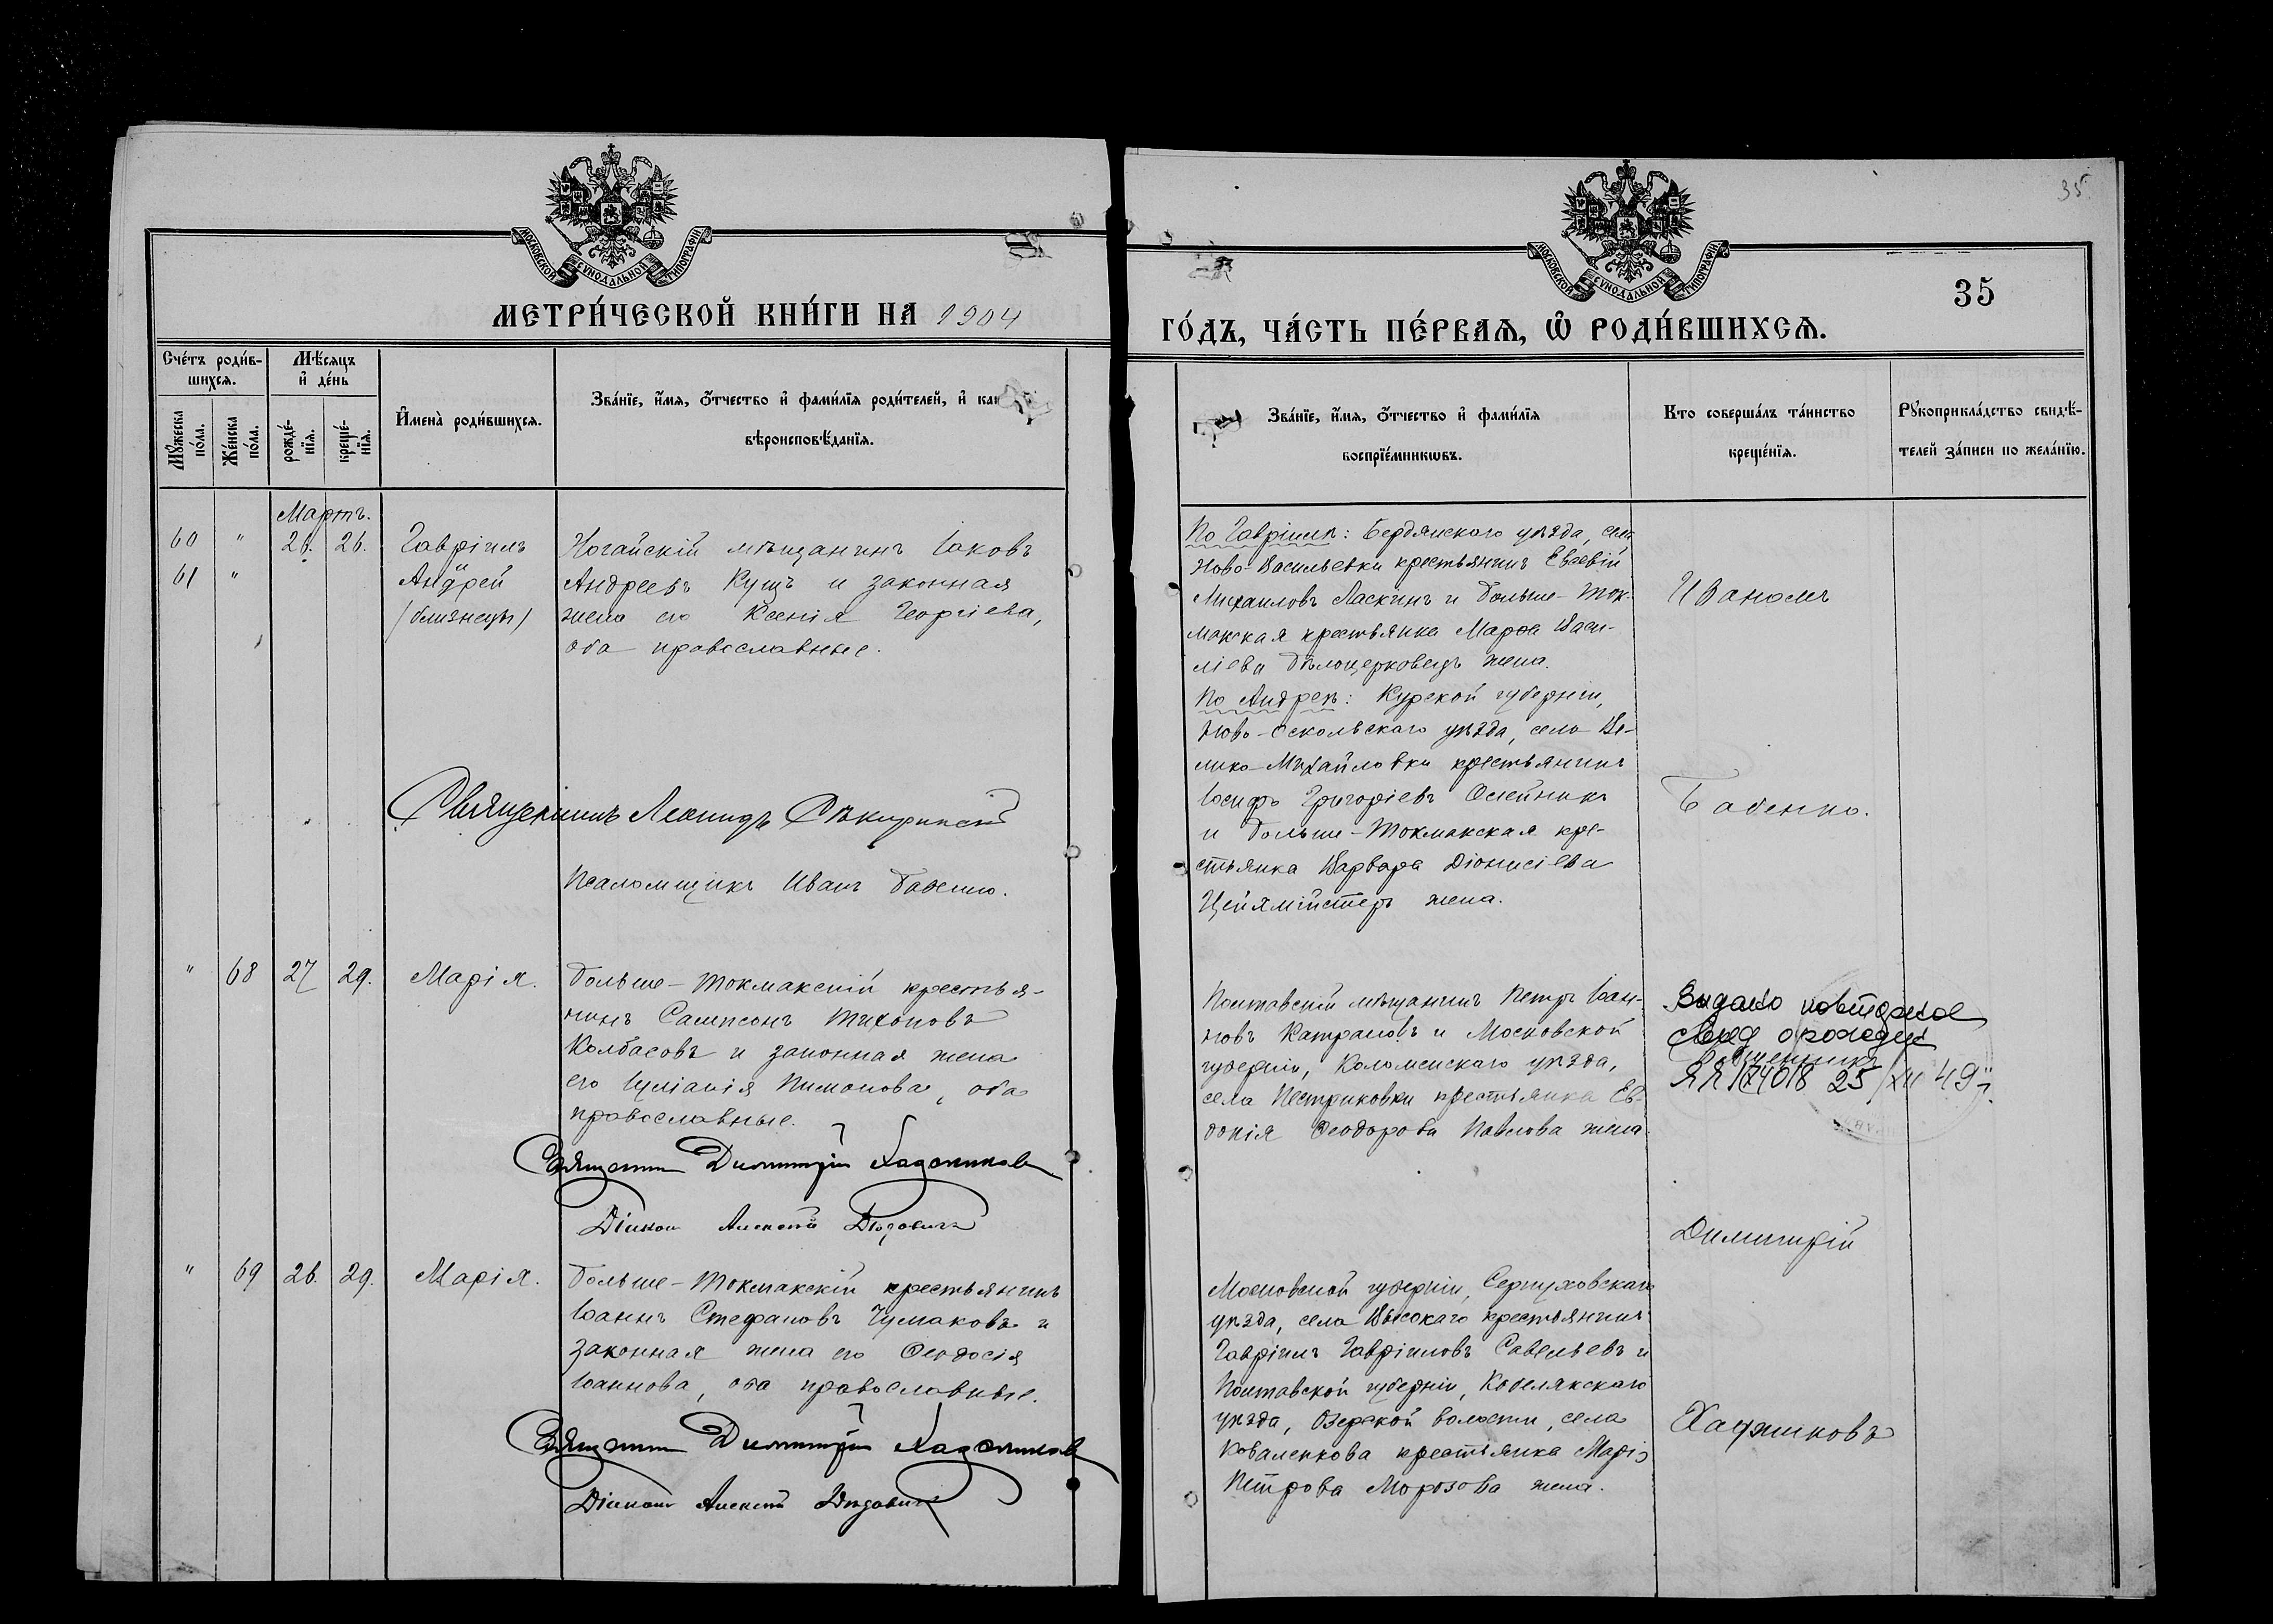 35.
МОСКОВСКОЙ СѴНОДАЛЬНОЙ ТИПОГРАФІИ
МОСКОВСКОЙ СѴНОДАЛЬНОЙ ТИПОГРАФІИ
35
МЕТРИ́ЧЕСКОЙ КНИ́ГИ НА 1904
ГО́ДЪ, ЧА́СТЬ ПЕ́РВАѦ, Ѽ РОДИ́ВШИХСѦ.
Сче́тъ роди́в-
шихсѧ.
Мѣ́сѧцъ
и҆ де́нь
Мꙋ́жеска по́ла.
Же́нска по́ла.
рожде́-
нїѧ.
креще́-
нїѧ.
И҆мена̀ роди́вшихсѧ.
Зва́нїе, и҆́мѧ, ѻ҆́тчество и҆ фами́лїѧ роди́телей, и҆ как
вѣроисповѣ́данїѧ.
Зва́нїе, и҆́мѧ, ѻ҆́тчество и҆ фами́лїѧ
воспрїе́мникѡвъ.
Кто соверша́лъ та́инство
креще́нїѧ.
Рꙋкоприкла́дство свидѣ́-
телей за́писи по жела́нїю.
Мартъ.
60 " 26. 26. Гавріилъ
и
61 " Андрей
(близнецы)
Ногайскій мѣщанинъ Іаковъ
Андреевъ Кущъ и законная
жена его Ксенія Георгіева,
оба православные.
Священникъ Леонидъ
Псаломщикъ Иванъ Бабенко.
По Гавріилѣ: Бердянскаго уѣзда, села
Ново-Васильевки крестьянинъ Евсевій
Михаиловъ Ласкинъ и Больше-Ток-
макская крестьянка Марѳа Васи-
ліева Бѣлоцерковецъ жена.
По Андреѣ: Курской губерніи,
Ново-Оскольскаго уѣзда, села Ве-
лико-Михайловки крестьянинъ
Іосифъ Григоріевъ Олейникъ
и Больше-Токмакская кре-
стьянка Варвара Діонисіева
жена.
Иваномъ
Бабенко.
" 68 27 29. Марія.
Больше-Токмакскій крестья-
нинъ Сампсонъ Тихоновъ
Колбасовъ и законная жена
его Іуліанія Пимонова, оба
православные.
Священникъ Димитрій
Діаконъ Алексій
Полтавскій мѣщанинъ Петръ Іоан-
новъ Катрановъ и Московской
губерніи, Коломенскаго уѣзда,
села Пестриковки крестьянка Ев-
докія Ѳеодорова Павлова жена.
Видано повторное
свид о рожден
ЯЯ 174018 25/XII 49 г.
Димитрій
" 69 26. 29. Марія.
Больше-Токмакскій крестьянинъ
Іоаннъ Стефановъ Чумаковъ и
законная жена его Ѳеодосія
Іоаннова, оба православные.
Священникъ Димитрій
Діаконъ Алексій
Московской губерніи, Серпуховскаго
уѣзда, села Высокаго крестьянинъ
Гавріилъ Гавріиловъ Савельевъ и
Полтавской губерніи, Кобелякскаго
уѣзда, Озерской волости, села
Коваленкова крестьянка Марія
Петрова Морозова жена.